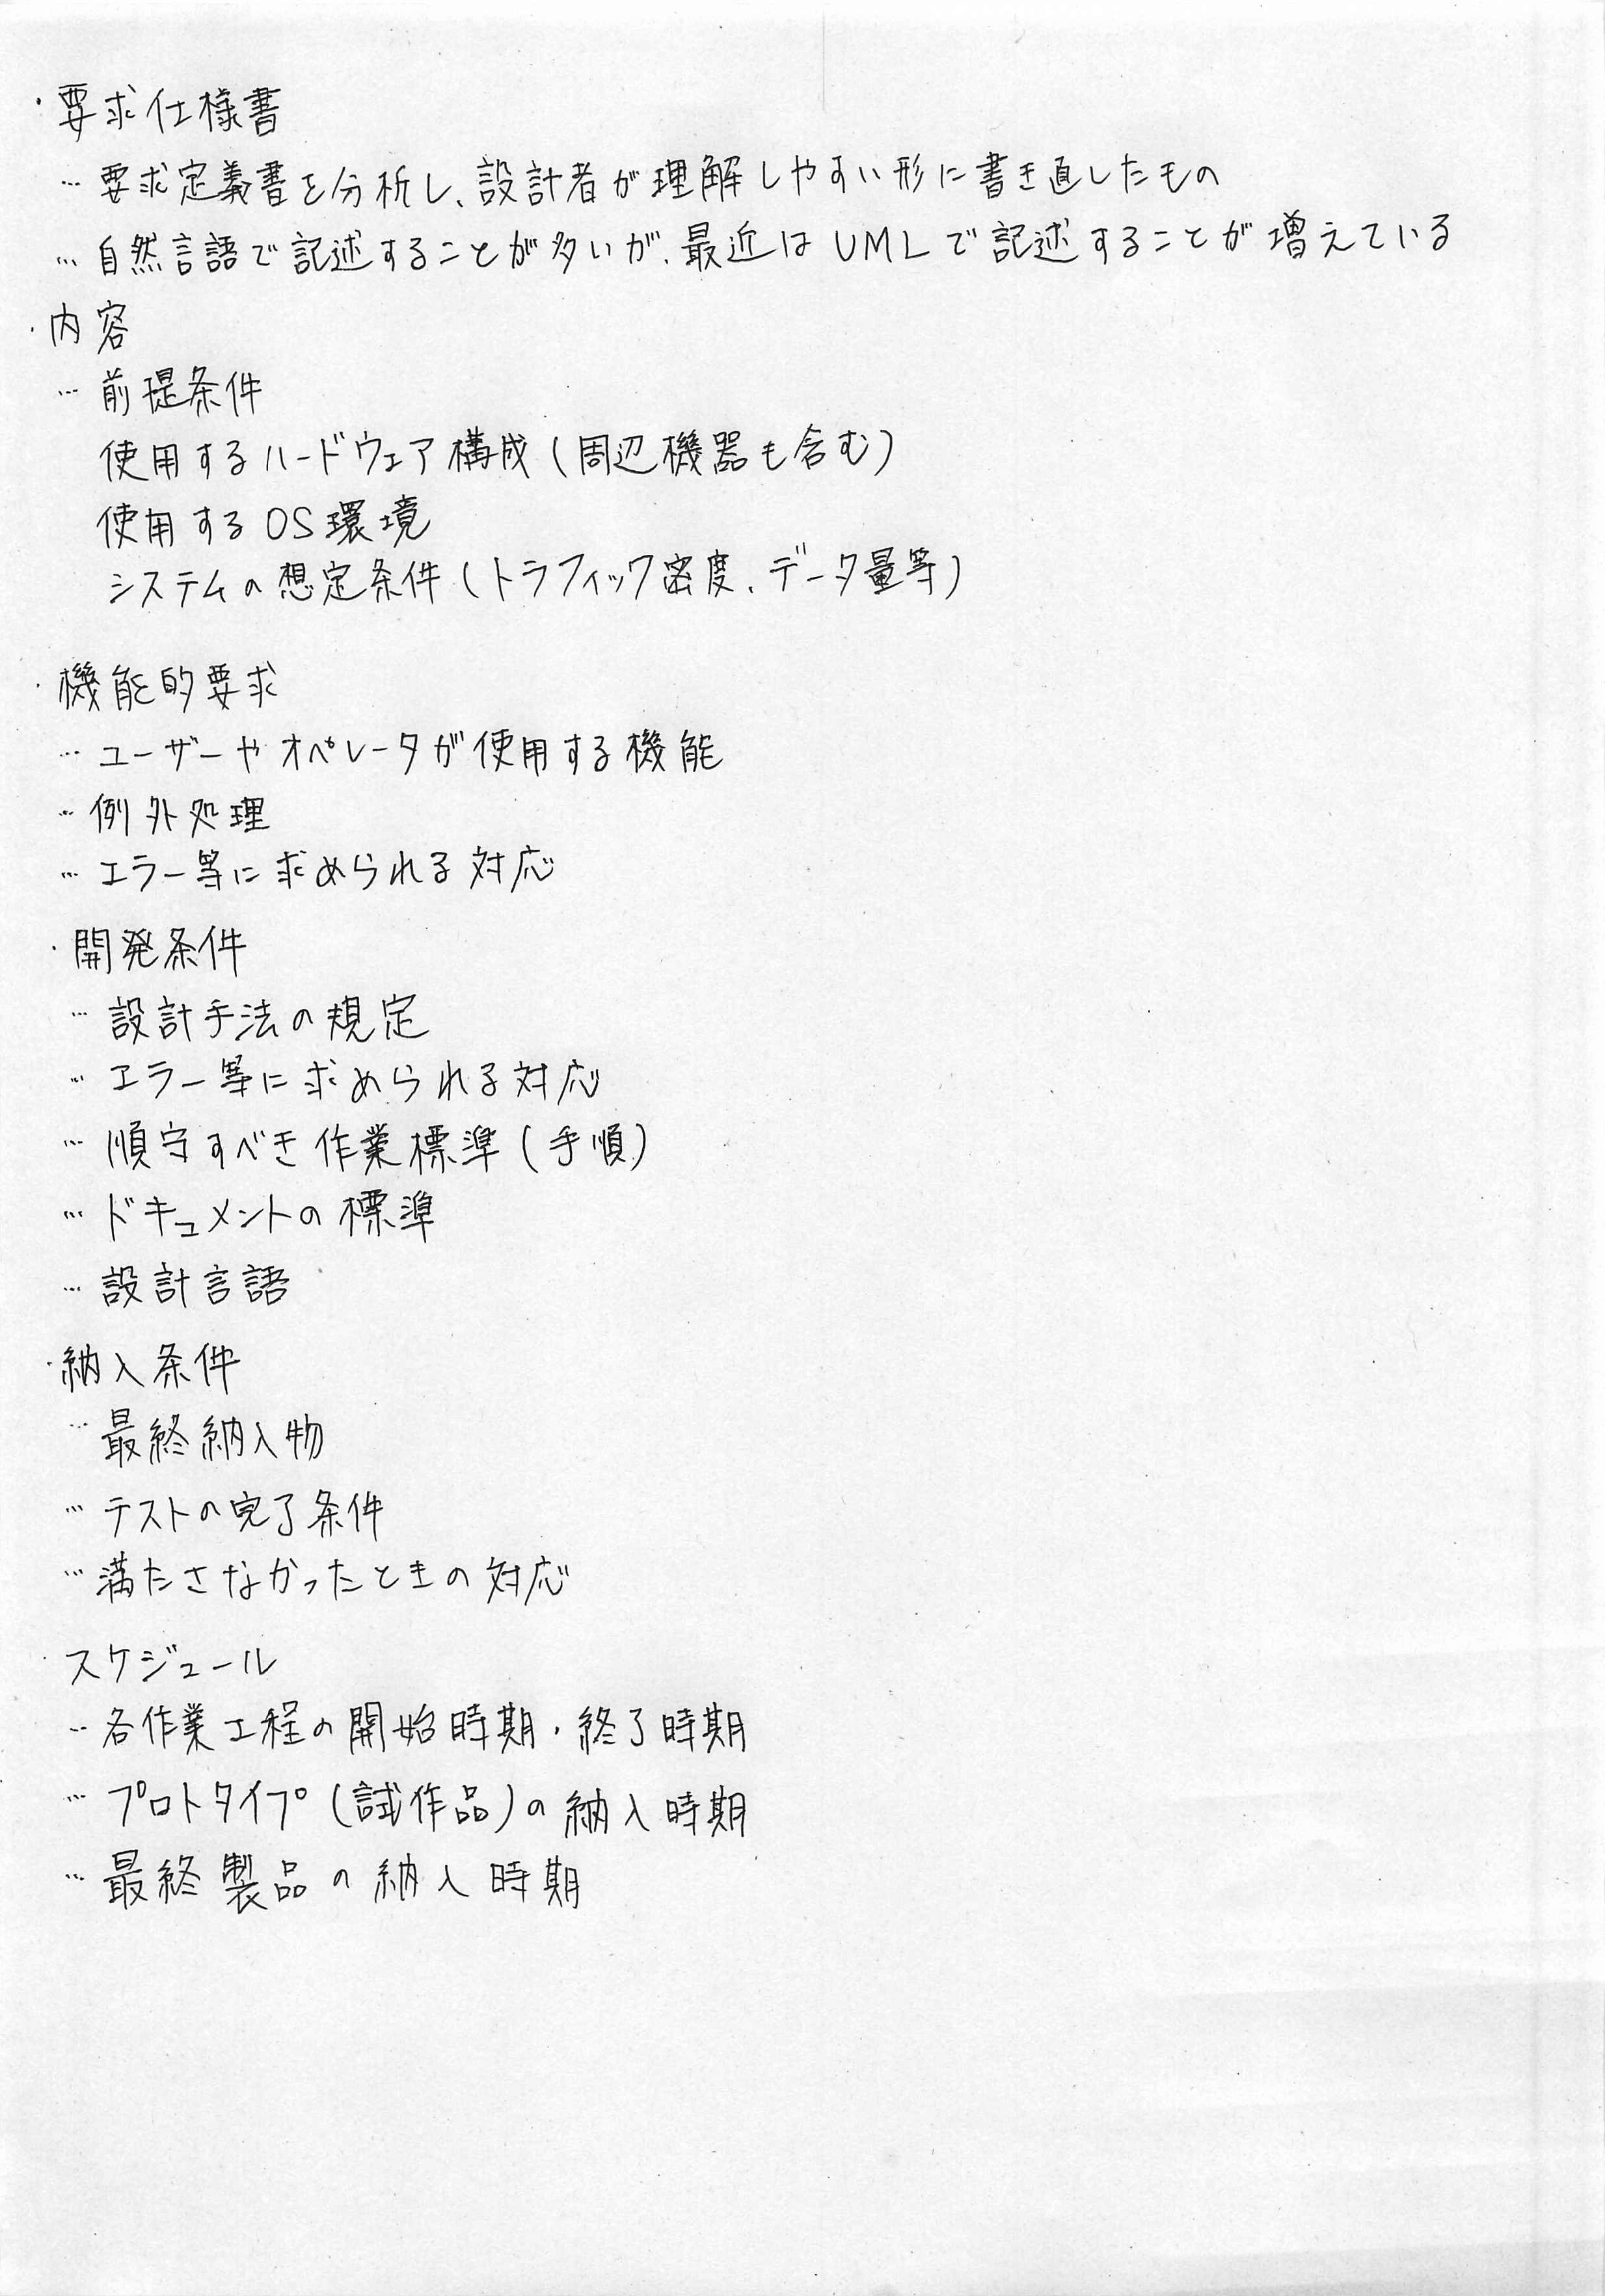 ・要求仕様書
… 要求定義書を分析し、設計者が理解しやすい形に書き直したもの
… 自然言語で記述することが多いが、最近はUMLで記述することが増えている
・内容
… 前提条件
使用するハードウェア構成(周辺機器も含む)
使用するOS環境
システムの想定条件(トラフィック密度、データ量等)
・機能的要求
… ユーザーやオペレータが使用する機能
… 例外処理
… エラー等に求められる対応
・開発条件
… 設計手法の規定
… エラー等に求められる対応
… 順守すべき作業標準(手順)
… ドキュメントの標準
… 設計言語
・納入条件
… 最終納入物
… テストの完了条件
… 満たさなかったときの対応
・スケジュール
… 各作業工程の開始時期・終了時期
… プロトタイプ(試作品)の納入時期
… 最終製品の納入時期